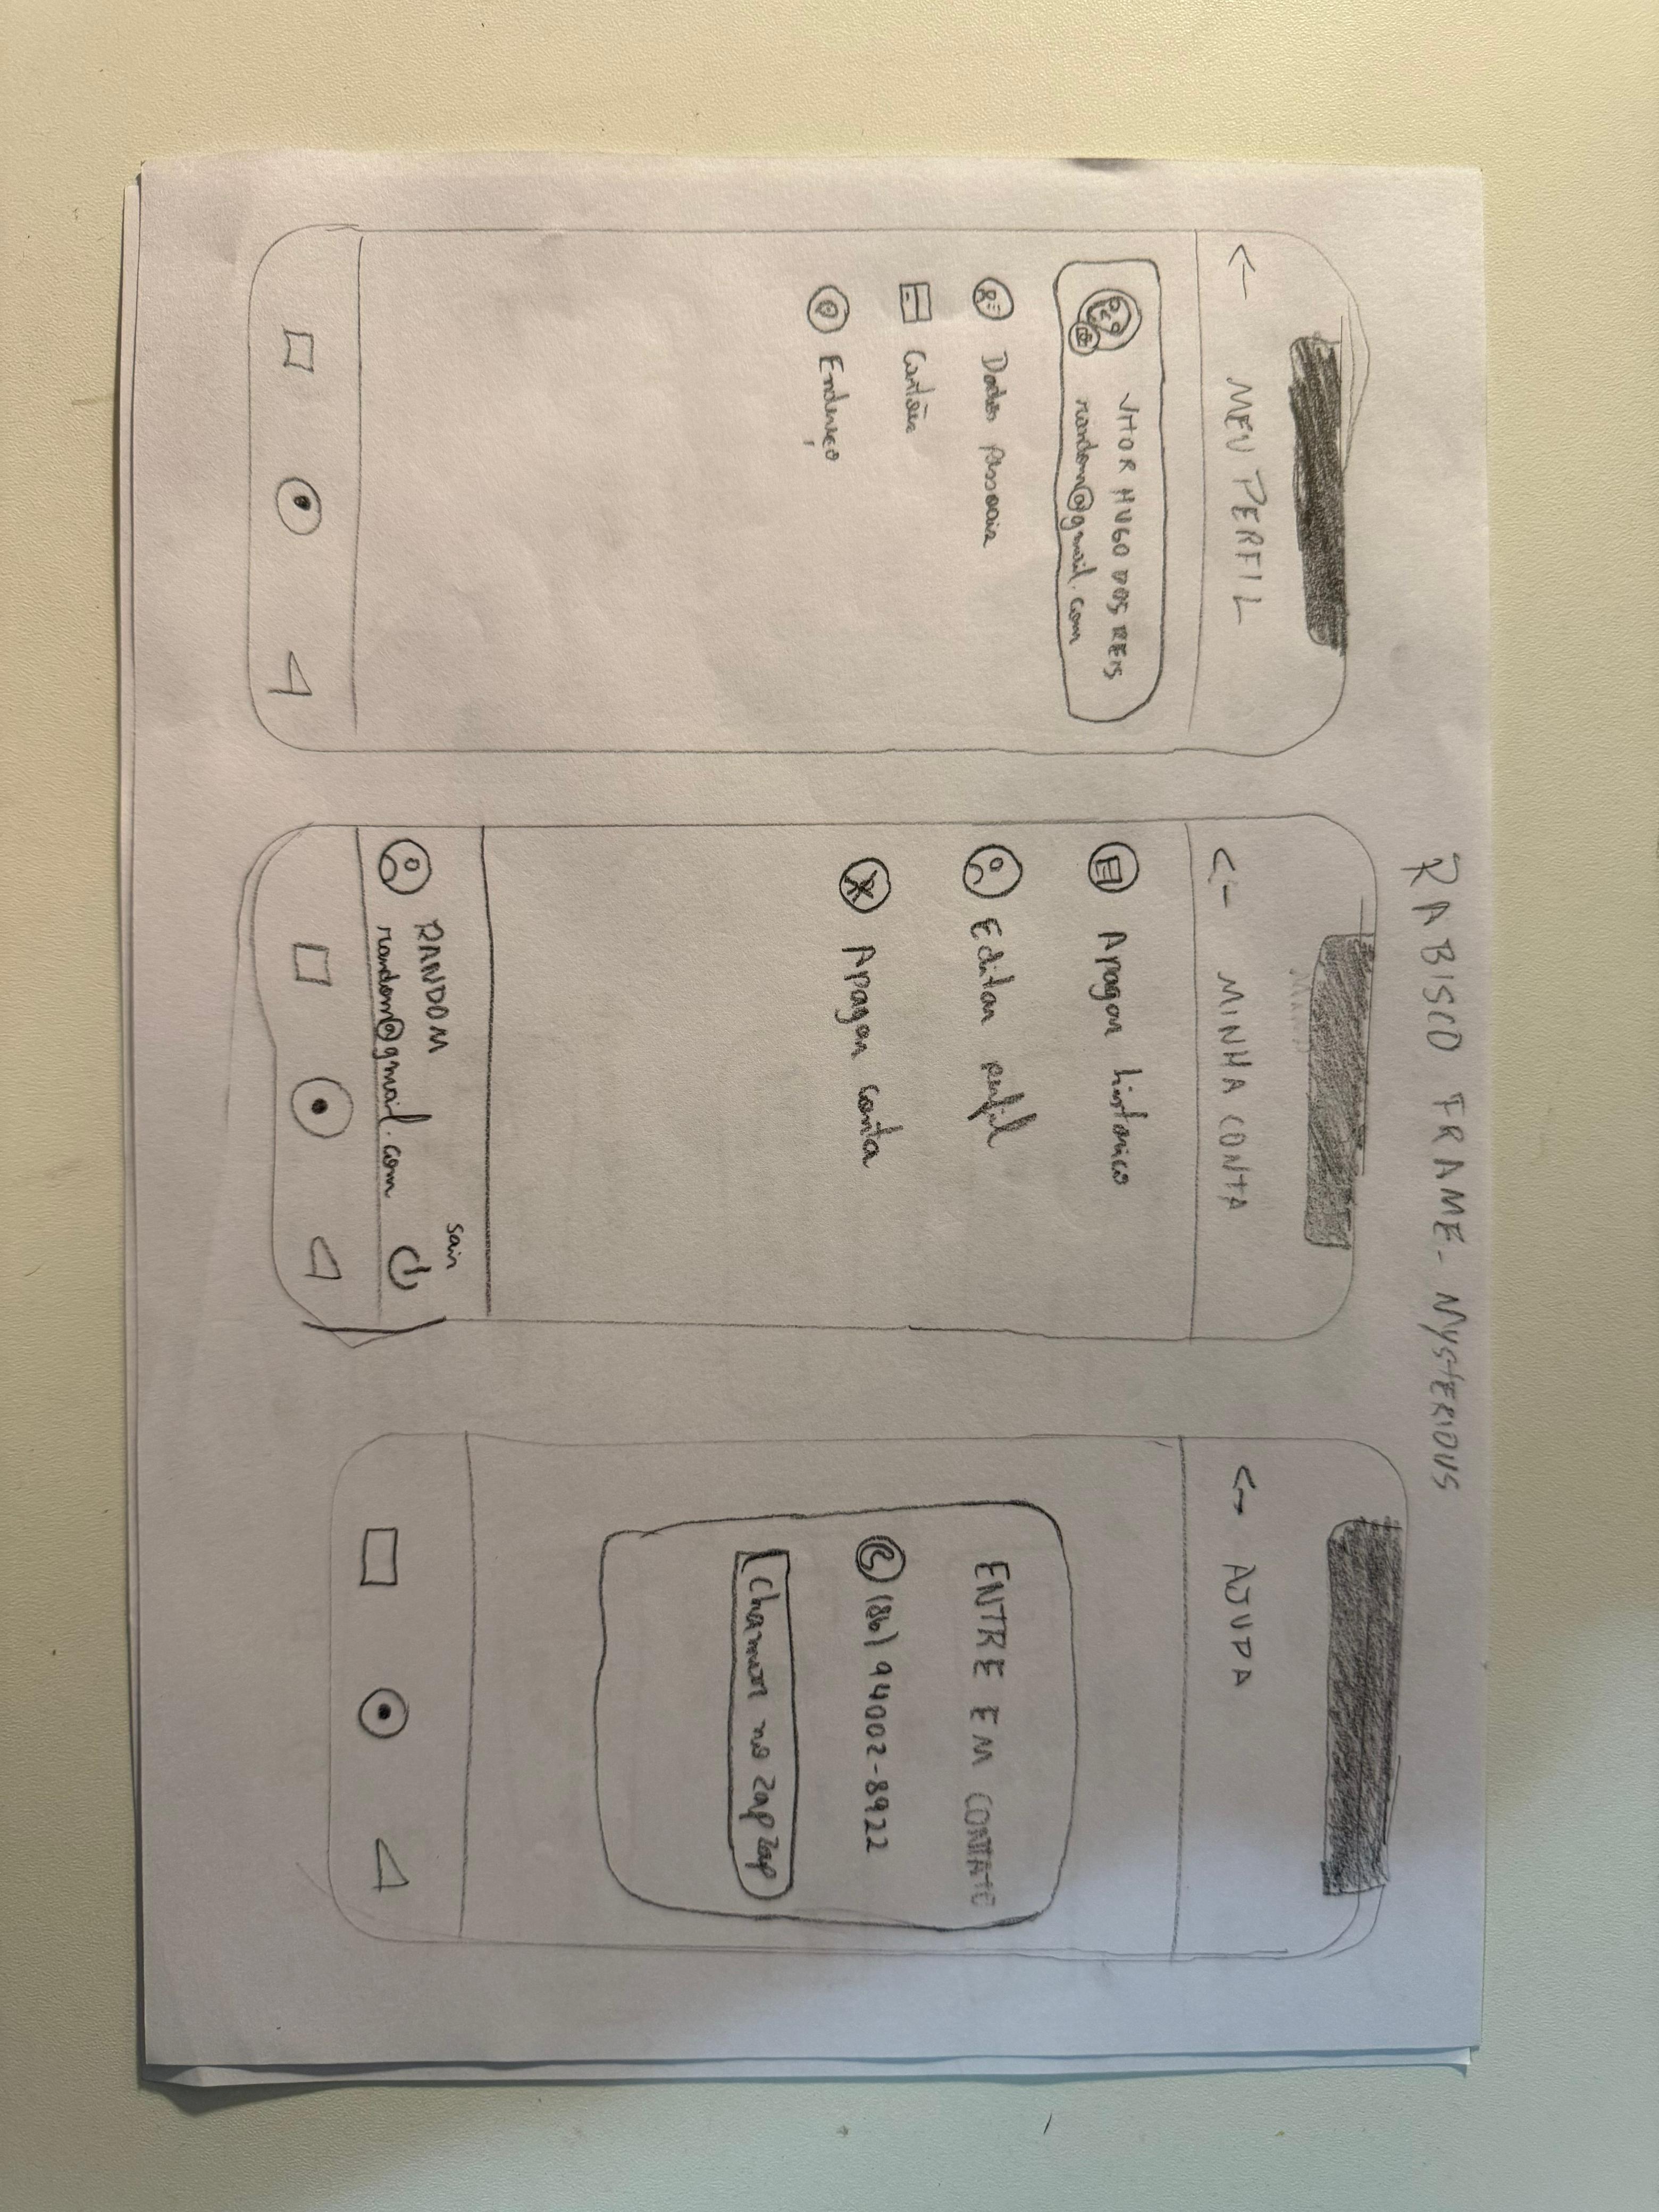 RABISCO FRAME - MYSTERIOUS
MEU PERFIL
VITOR HUGO DOS REIS
random@gmail.com
Dados pessoais
Cartões
Endereço
MINHA CONTA
Apagar histórico
Editar perfil
Apagar conta
RANDOM
random@gmail.com
Sair
AJUDA
ENTRE EM CONTATO
(86) 94002-8922
Chamar no zap zap